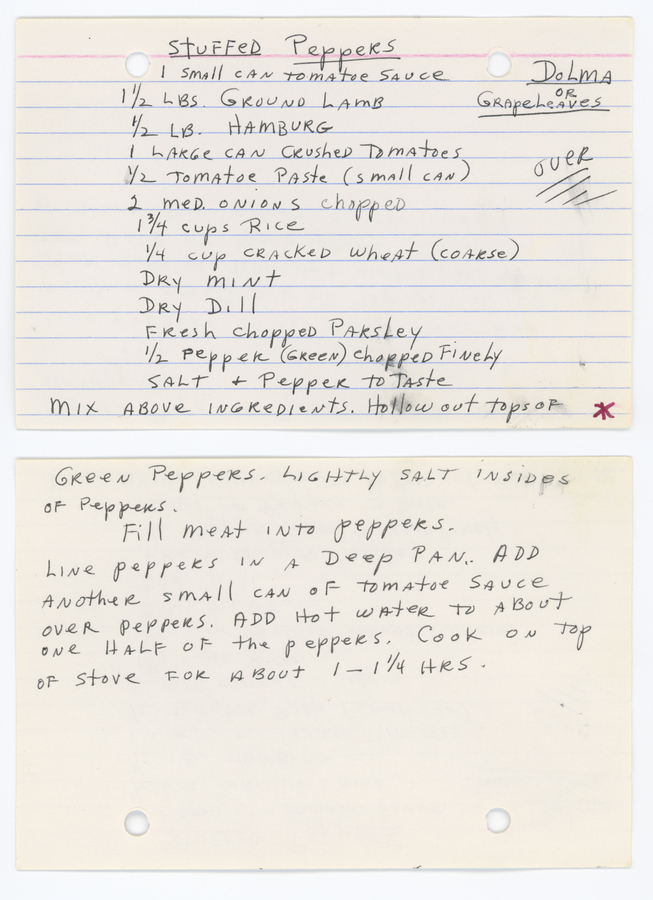 STUFFED PEPPERS
1 SMALL CAN TOMATOE SAUCE
DOLMA
OR
GRAPELEAVES
1 1/2 LBS. GROUND LAMB
1/2 LB. HAMBURG
1 LARGE CAN CRUSHED TOMATOES
OVER
1/2 TOMATOE PASTE (SMALL CAN)
2 MED. ONIONS chopped
1 3/4 cups RICE
1/4 cup CRACKED WHEAT (COARSE)
DRY MINT
DRY DILL
FRESH CHOPPED PARSLEY
1/2 PEPPER (GREEN) CHOPPED FINELY
SALT + PEPPER TO TASTE
MIX ABOVE INGREDIENTS. HOLLOW OUT TOPS OF *
GREEN PEPPERS. LIGHTLY SALT INSIDES
OF PEPPERS.
FILL MEAT INTO PEPPERS.
LINE PEPPERS IN A DEEP PAN. ADD
ANOTHER SMALL CAN OF TOMATOE SAUCE
OVER PEPPERS. ADD HOT WATER TO ABOUT
ONE HALF OF THE PEPPERS. COOK ON TOP
OF STOVE FOR ABOUT 1 – 1 1/4 HRS.